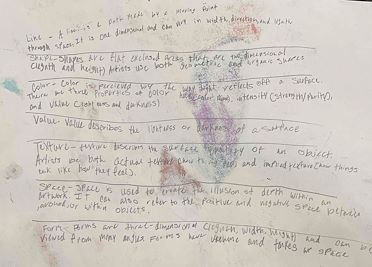 Line - A Line is a path made by a moving point
through space. It is one dimensional and can vary in width, direction, and length
Shape - shapes are flat enclosed areas that are two dimensional
(length and height) Artists use both geometric and organic shapes
Color - Color is perceived by the way light reflects off a surface.
There are three properties of color hue (color name), intensity (strength/purity),
and value (lightness and darkness)
Value - Value describes the lightness or darkness of a surface
Texture - texture describes the surface quality of an object.
Artists use both actual texture (how things feel) and implied texture (how things
look like they feel).
Space - Space is used to create the illusion of depth within an
artwork. It can also refer to the positive and negative space between
around, or within objects.
Form - Forms are three-dimensional (length, width, height) and can be
viewed from many angles. Forms have volume and take up space